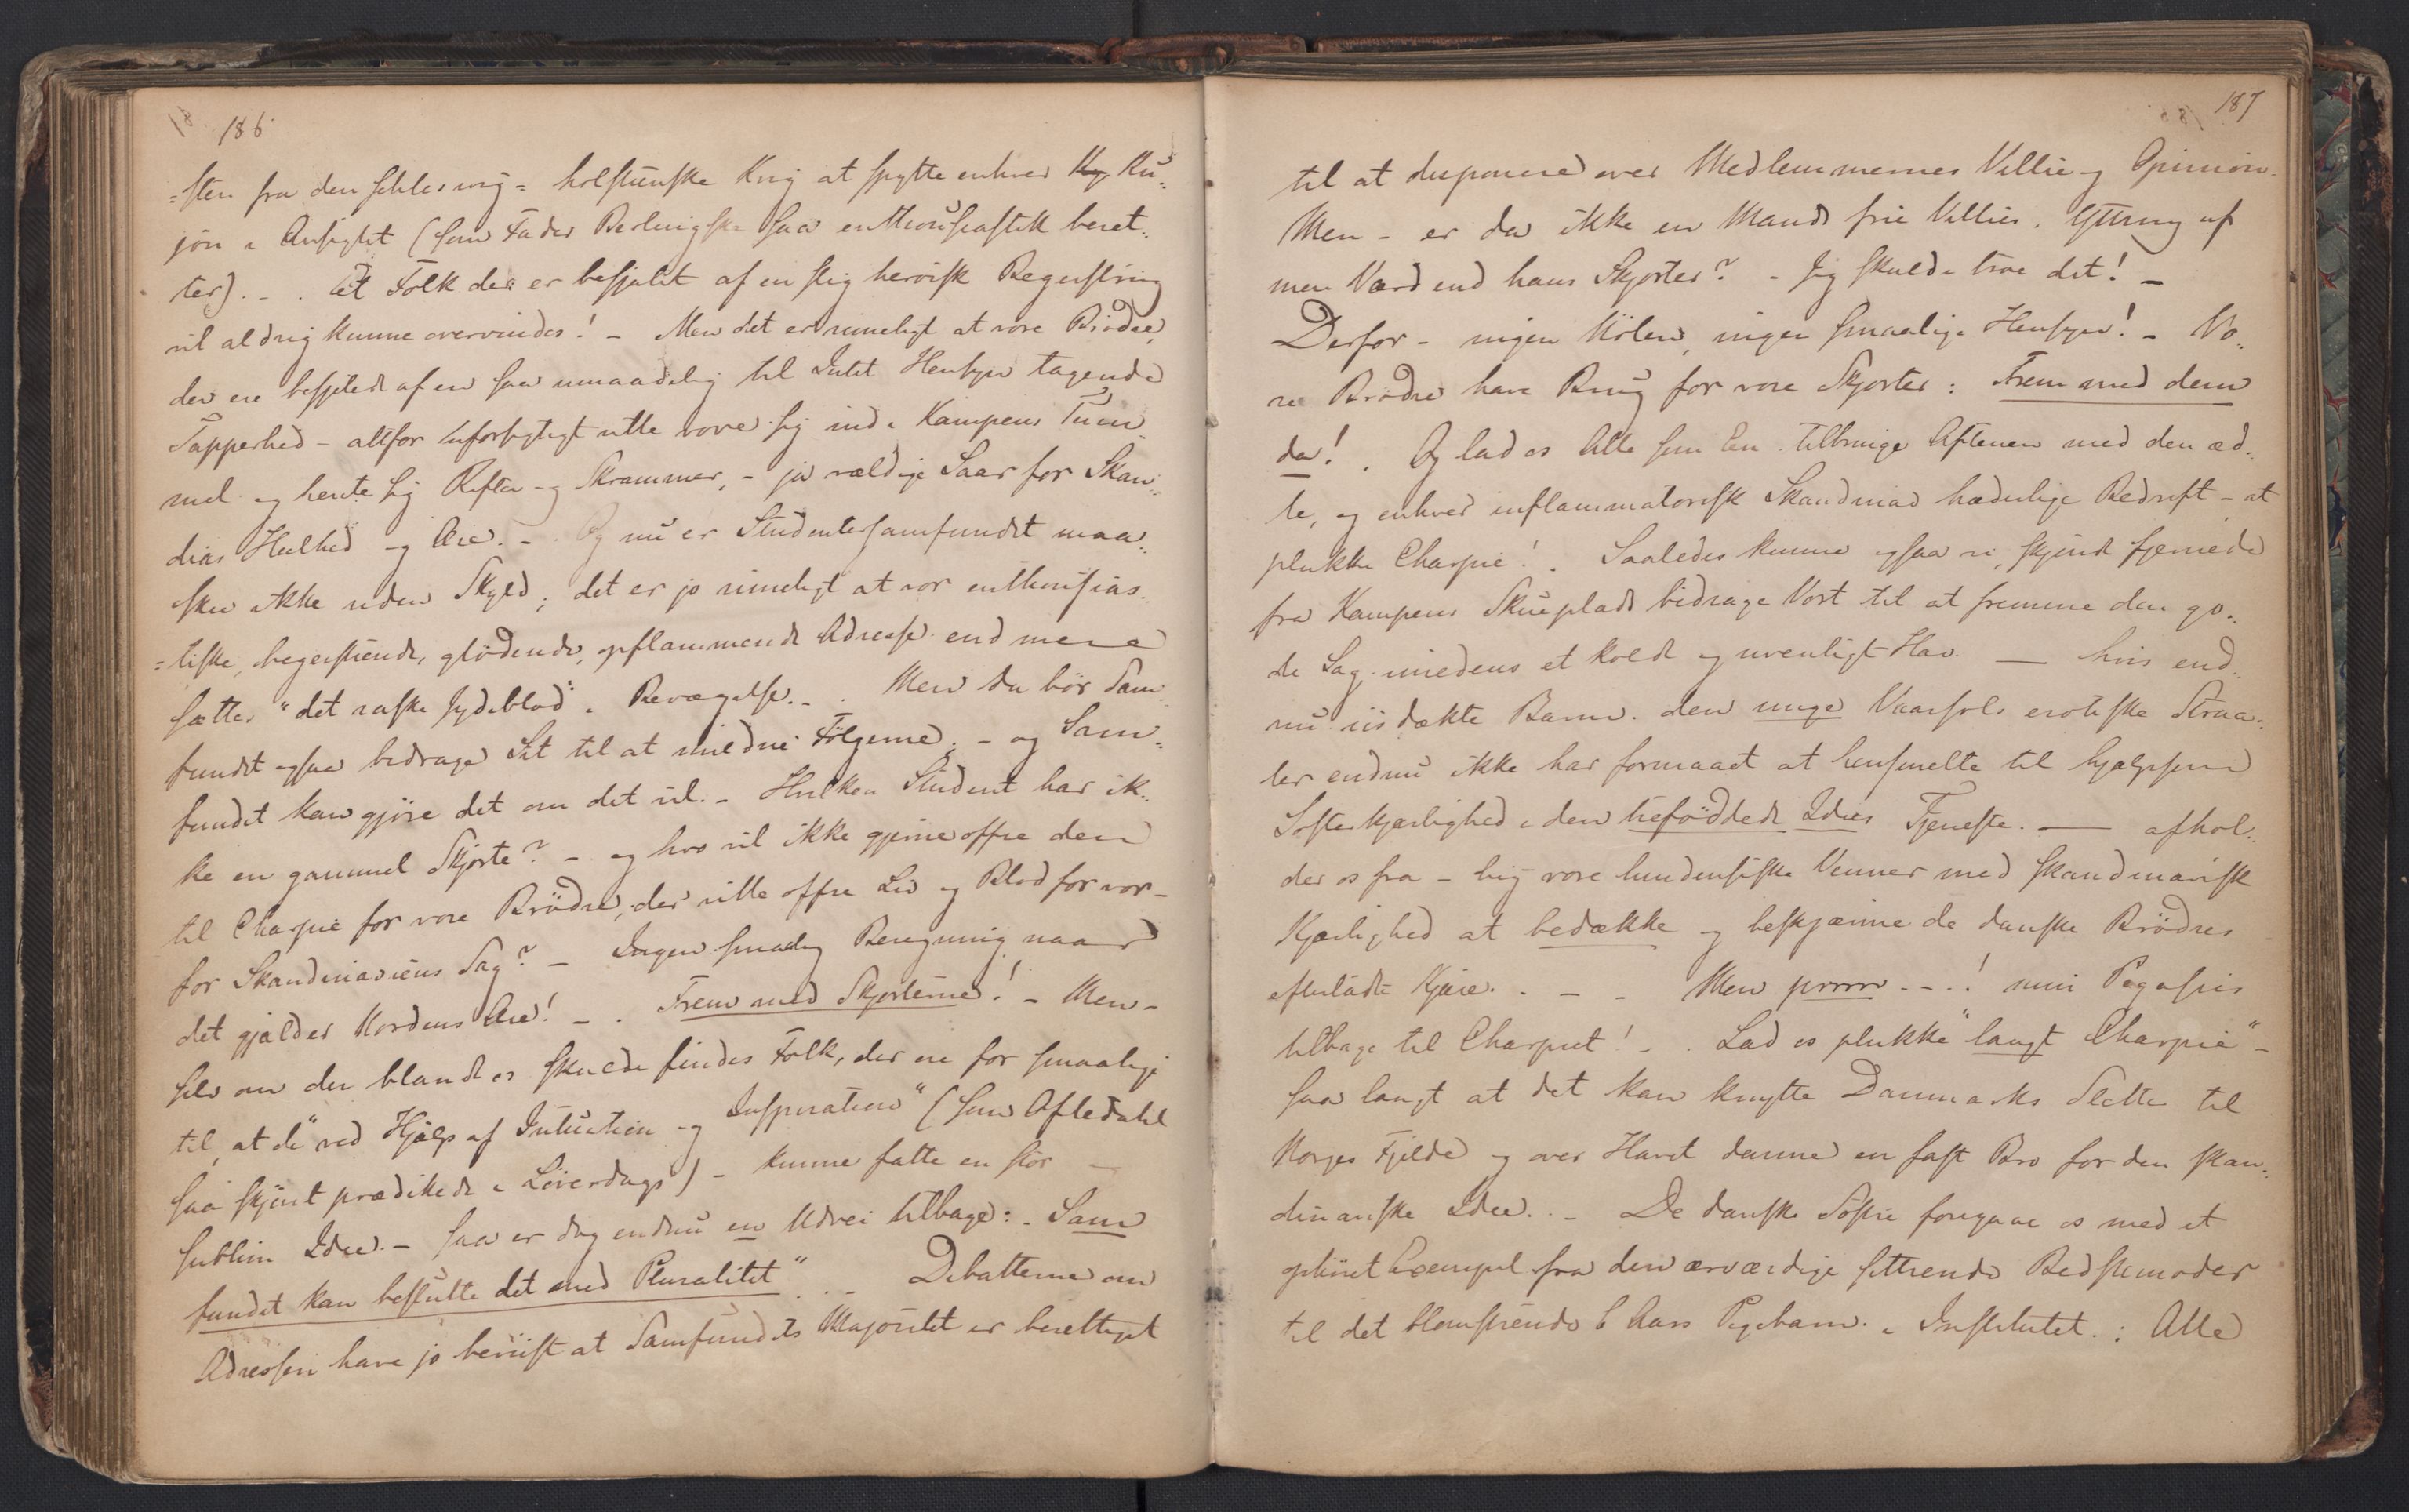 186
=sten fra den schleswig=holstenske Krig at spytte enhver Ku=
jon i Ansigtet (som Fader Berlingske saa enthousiastisk beret=
ter). - . Et Folk der er besjælet af en slig heroisk Begeistring
vil aldrig kunne overvindes! - Men det er rimeligt at vore Brødre,
der ere besjælede af en saa umaadelig til Intet Hensyn tagende
Tapperhed - altfor uforsigtigt ville vove sig ind i Kampens Tum=
mel og hente sig Rifter og Skrammer, - ja vældige Saar for Skan=
dias Heelhed og Ære. - . Og nu er Studentersamfundet maa=
skee ikke uden Skyld; det er jo rimeligt at vor enthousias=
=tiske, begeistrende, glødende, opflammende Adresse end mere
sætter "det raske Jydeblod" i Bevægelse. - . Men da bør Sam=
fundet ogsaa bidrage Sit til at mildne Følgerne; - og Sam=
fundet kan gjøre det om det vil. - Hvilken Student har ik=
ke en gammel Skjorte? - og hvo vil ikke gjerne offre den
til Charpie for vore Brødre, der ville offre Liv og Blod for vor -
for Skandinaviens Sag? - Ingen smaalig Beregning naar
det gjælder Nordens Ære! - . Frem med Skjorterne! - Men -
selv om der blandt os skulde findes Folk, der ere for smaalige
til, at de "ved Hjælp af Intuition og Inspiration" (som Afledahl
saa skjønt prædikede i Løverdags) - kunne fatte en stor -
sublim Idee. - saa er dog endnu en Udvei tilbage: - Sam
fundet kan beslutte det med Pluralitet" . . - Debatterne om
Adressen have jo beviist at Samfundets Majoritet er berettiget
187
til at disponere over Medlemmernes Villie og Opinion.
Men - er da ikke en Mands frie Villies Yttring af
mere Værd end hans Skjorter? - Jeg skulde troe det! -
Derfor - ingen Nølen, ingen smaalige Hensyn! - Vo=
re Brødre have Brug for vore Skjorter: Frem med dem
da! . Og lad os Alle som Een tilbringe Aftenen med den æd=
le, og enhver inflammatorisk Skandinav hæderlige Bedrift - at
plukke Charpie! . Saaledes kunne ogsaa vi, skjøndt fjernede
fra Kampens Skueplads bidrage Vort til at fremme den go=
de Sag, imedens et koldt og uvenligt Hav - hvis end=
nu iisdækte Barm den unge Vaarsols erotiske Straa=
ler endnu ikke har formaaet at hensmelte til hjælpsom
Søsterkjærlighed i den trefødde Idees Tjeneste. - afhol=
der os fra - hig vore lundensiske Venner med skandinavisk
Kjærlighed at bedække og beskjærme de danske Brødres
efterladte Kjære. . - - Men prrrrr - - . ! min Pegasus
tilbage til Charpiet! - . Lad os plukke "langt Charpie" -
saa langt at det kan knytte Danmarks Slette til
Norges Fjelde og over Havet danne en fast Bro for den skan=
dinaviske Idee. . - De danske Søstre foregaae os med et
ophøiet Exempel fra den ærværdige sittrende Bedstemoder
til det blomstrende 6 Aars Pigebarn i Institutet. : Alle